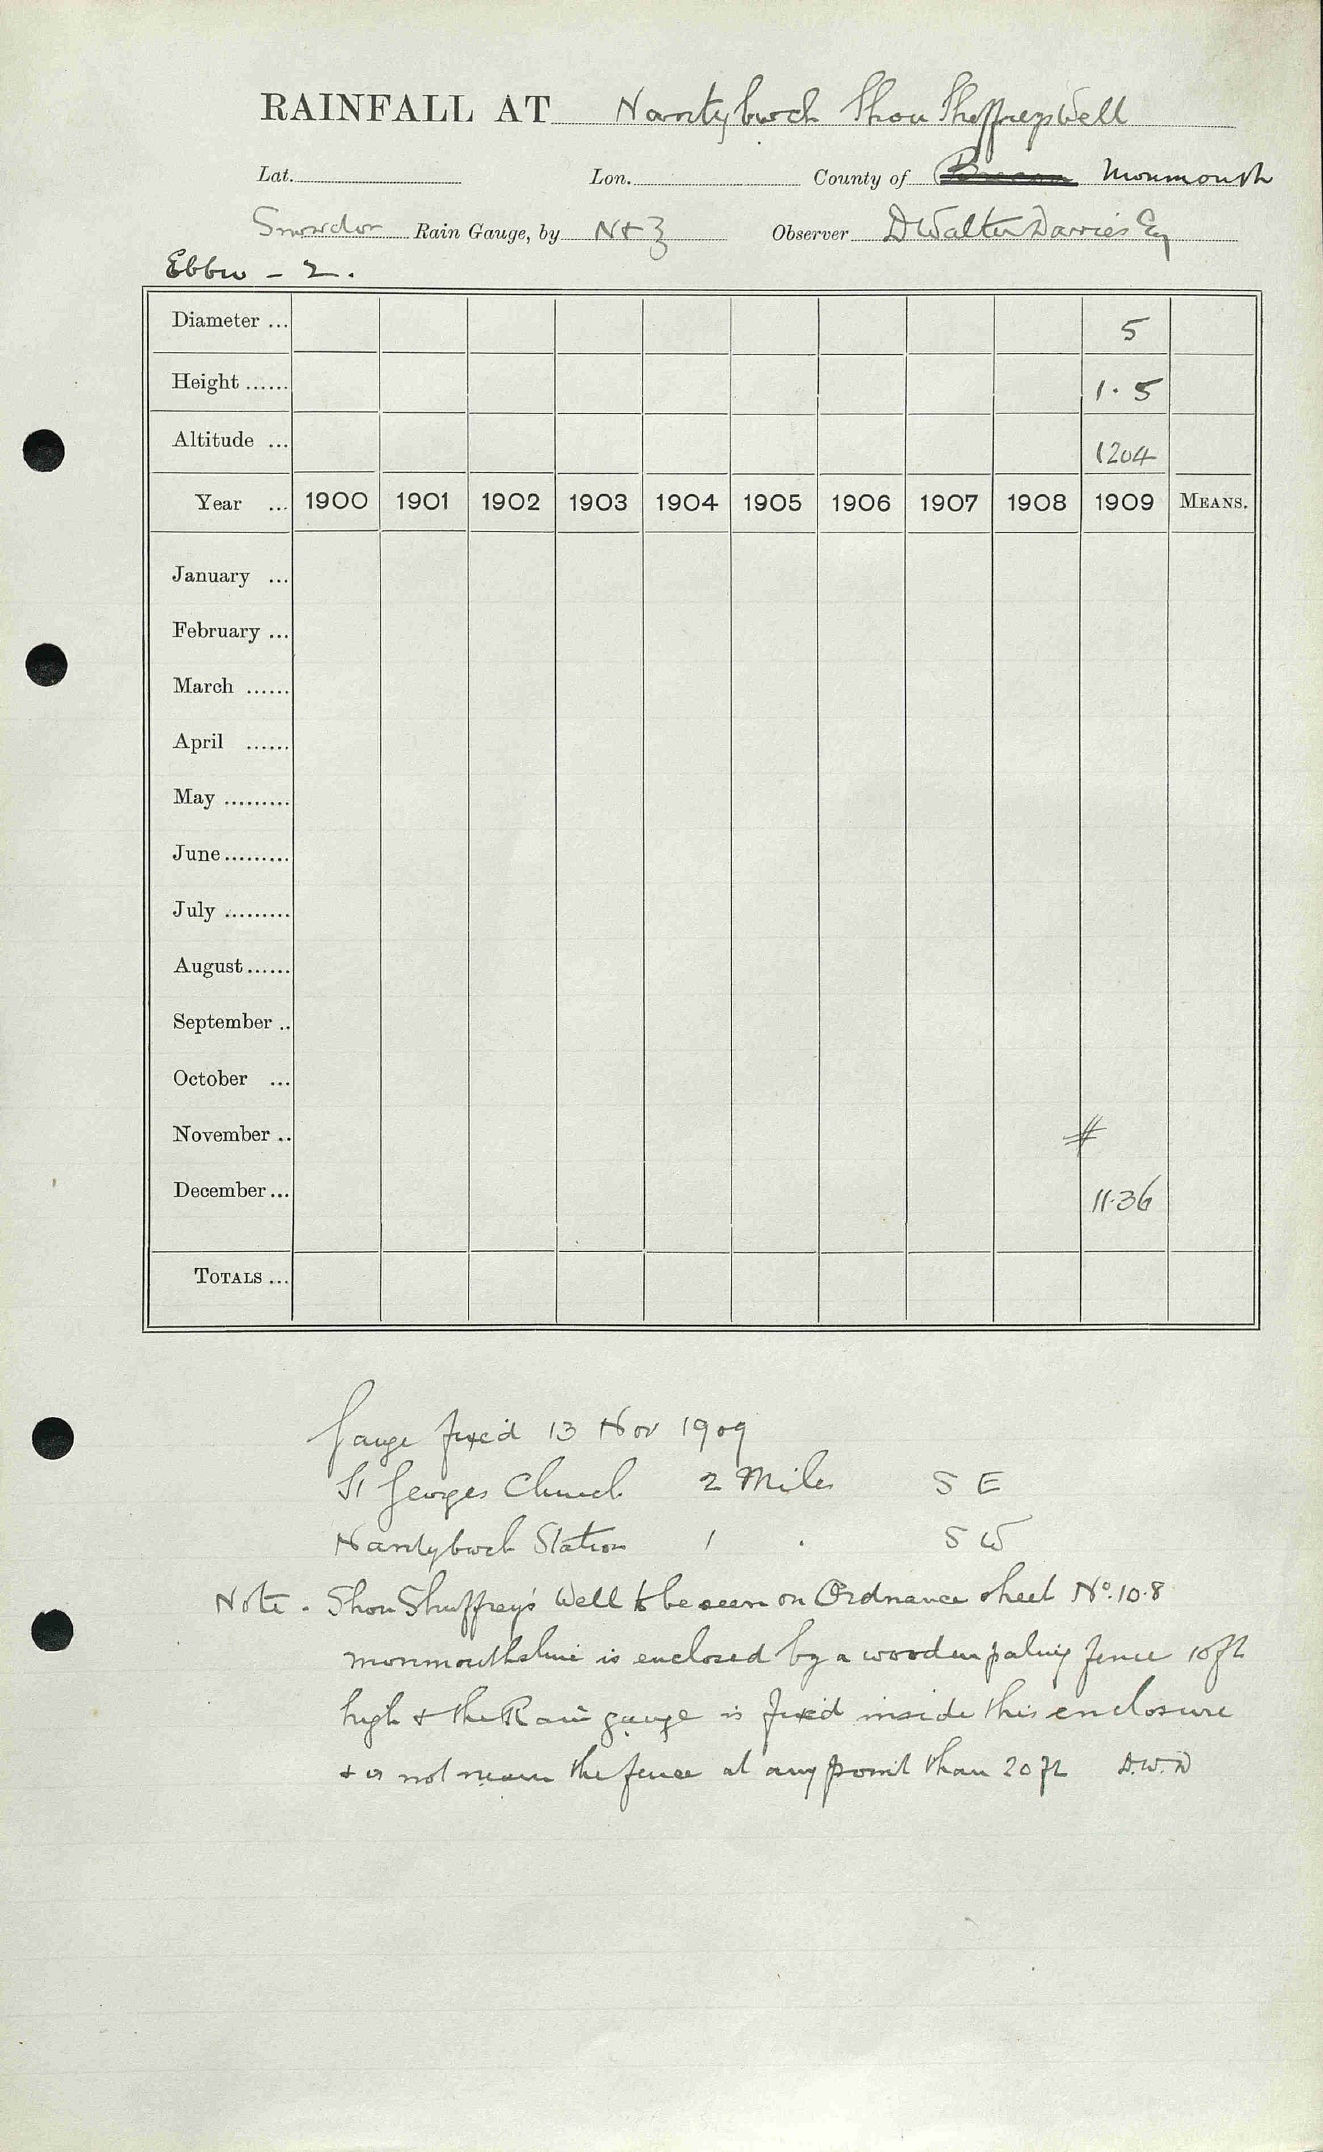 RAINFALL AT Nantybwch Shon Sheffreys Well
Lat. Lon. County of Brecon Monmouth
Snowdon Rain Gauge, by N & Z Observer D Walter Davies Esq
Ebbw - 2.
Diameter ... 5
Height ...... 1.5
Altitude ... 1204
Year ... 1900 1901 1902 1903 1904 1905 1906 1907 1908 1909 MEANS.
January ...
February ...
March ......
April ......
May .........
June .........
July .........
August ......
September ..
October ...
November .. #
December ... 11.36
TOTALS ...
Gauge fixed 13 Nov 1909
St Georges Church 2 Miles S E
Nantybwch Station 1 . S W
Note . Shon Shuffrey's Well to be seen on Ordnance sheet No. 10.8
Monmouthshire is enclosed by a wooden paling fence 10 ft
high & the Rain gauge is fixed inside this enclosure
& is not nearer the fence at any point than 20 ft D.W.D